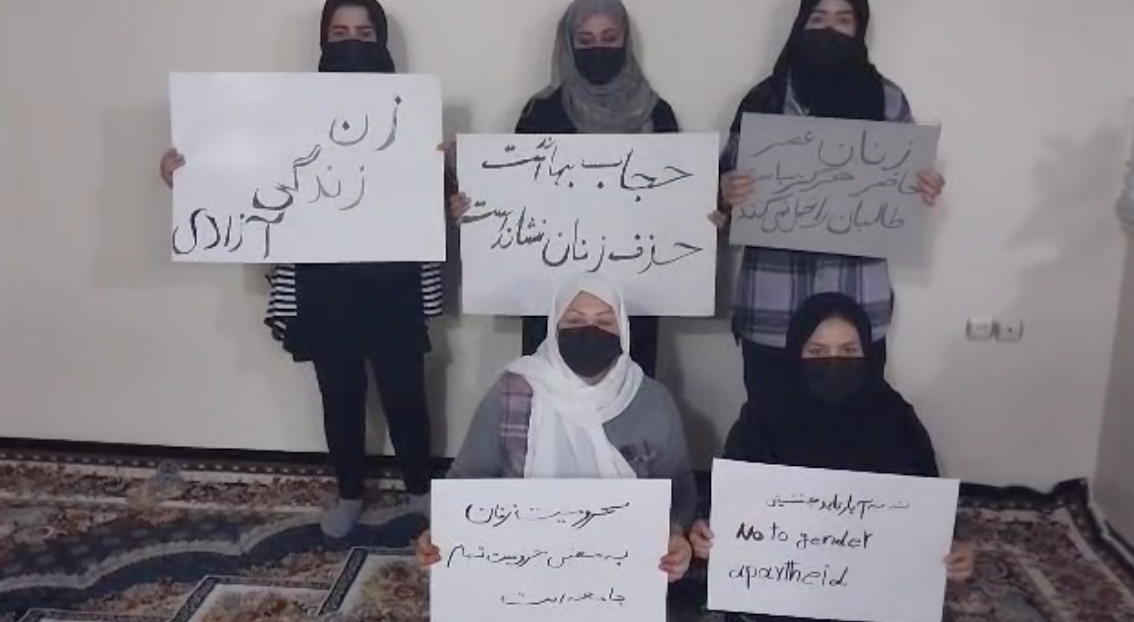 زن
زندگی
آزادی
حجاب بهانه است
حذف زنان نشانه است
زنان عصر
حاضر هرگز سیاست
طالبان را حمل نمی‌کند
محرومیت زنان
به معنی محرومیت تمام
جامعه است
نه به آپارتاید جنسیتی
No to gender
apartheid